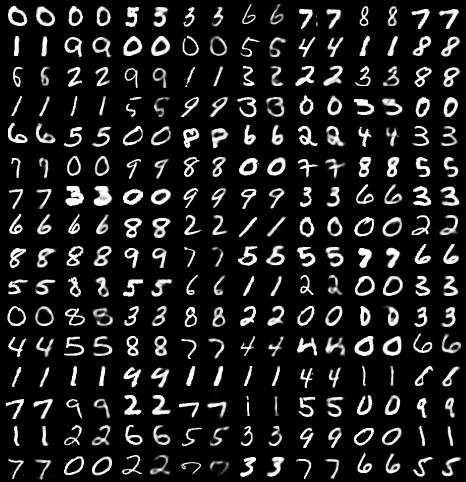 0 0 0 0 5 5 3 3 6 6 7 7 8 8 7 7
1 1 9 9 0 0 0 0 5 5 4 4 1 1 8 8
6 6 2 2 9 9 1 1 3 3 2 2 3 3 8 8
1 1 1 1 5 5 9 9 3 3 0 0 3 3 0 0
6 6 5 5 0 0 8 8 6 6 2 2 4 4 3 3
7 7 0 0 9 9 8 8 0 0 7 7 8 8 5 5
7 7 3 3 0 0 9 9 9 9 3 3 6 6 3 3
6 6 6 6 8 8 2 2 1 1 0 0 0 0 2 2
8 8 8 8 9 9 7 7 5 5 5 5 9 9 6 6
5 5 8 8 5 5 6 6 1 1 2 2 0 0 3 3
0 0 8 8 3 3 8 8 2 2 0 0 0 0 3 3
4 4 5 5 8 8 7 7 4 4 4 4 0 0 6 6
1 1 1 1 9 9 1 1 1 1 4 4 1 1 8 8
7 7 9 9 2 2 7 7 1 1 5 5 0 0 9 9
1 1 2 2 6 6 5 5 3 3 9 9 0 0 1 1
7 7 0 0 2 2 7 3 3 7 7 6 6 5 5